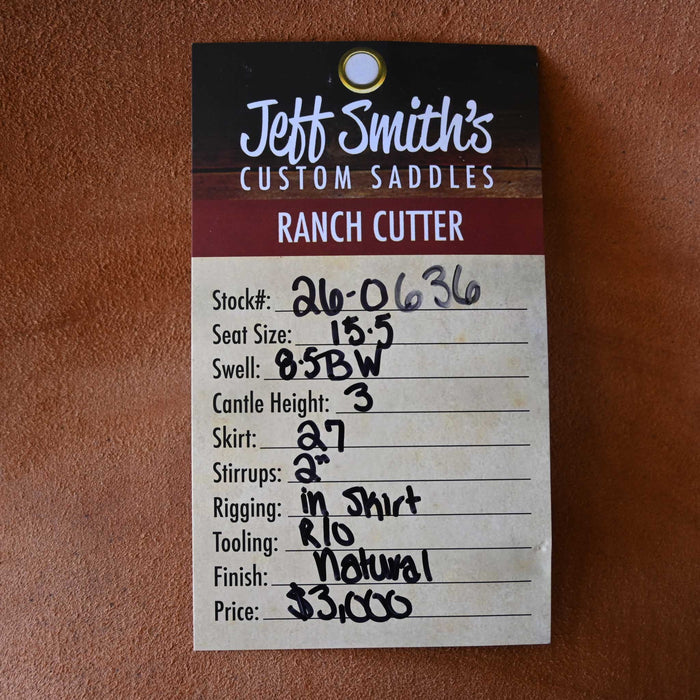 Jeff Smith's
CUSTOM SADDLES
RANCH CUTTER
Stock#: 26-0636
Seat Size: 15.5
Swell: 8.5BW
Cantle Height: 3
Skirt: 27
Stirrups: 2"
Rigging: in Skirt
Tooling: Rio
Finish: Natural
Price: $3,000